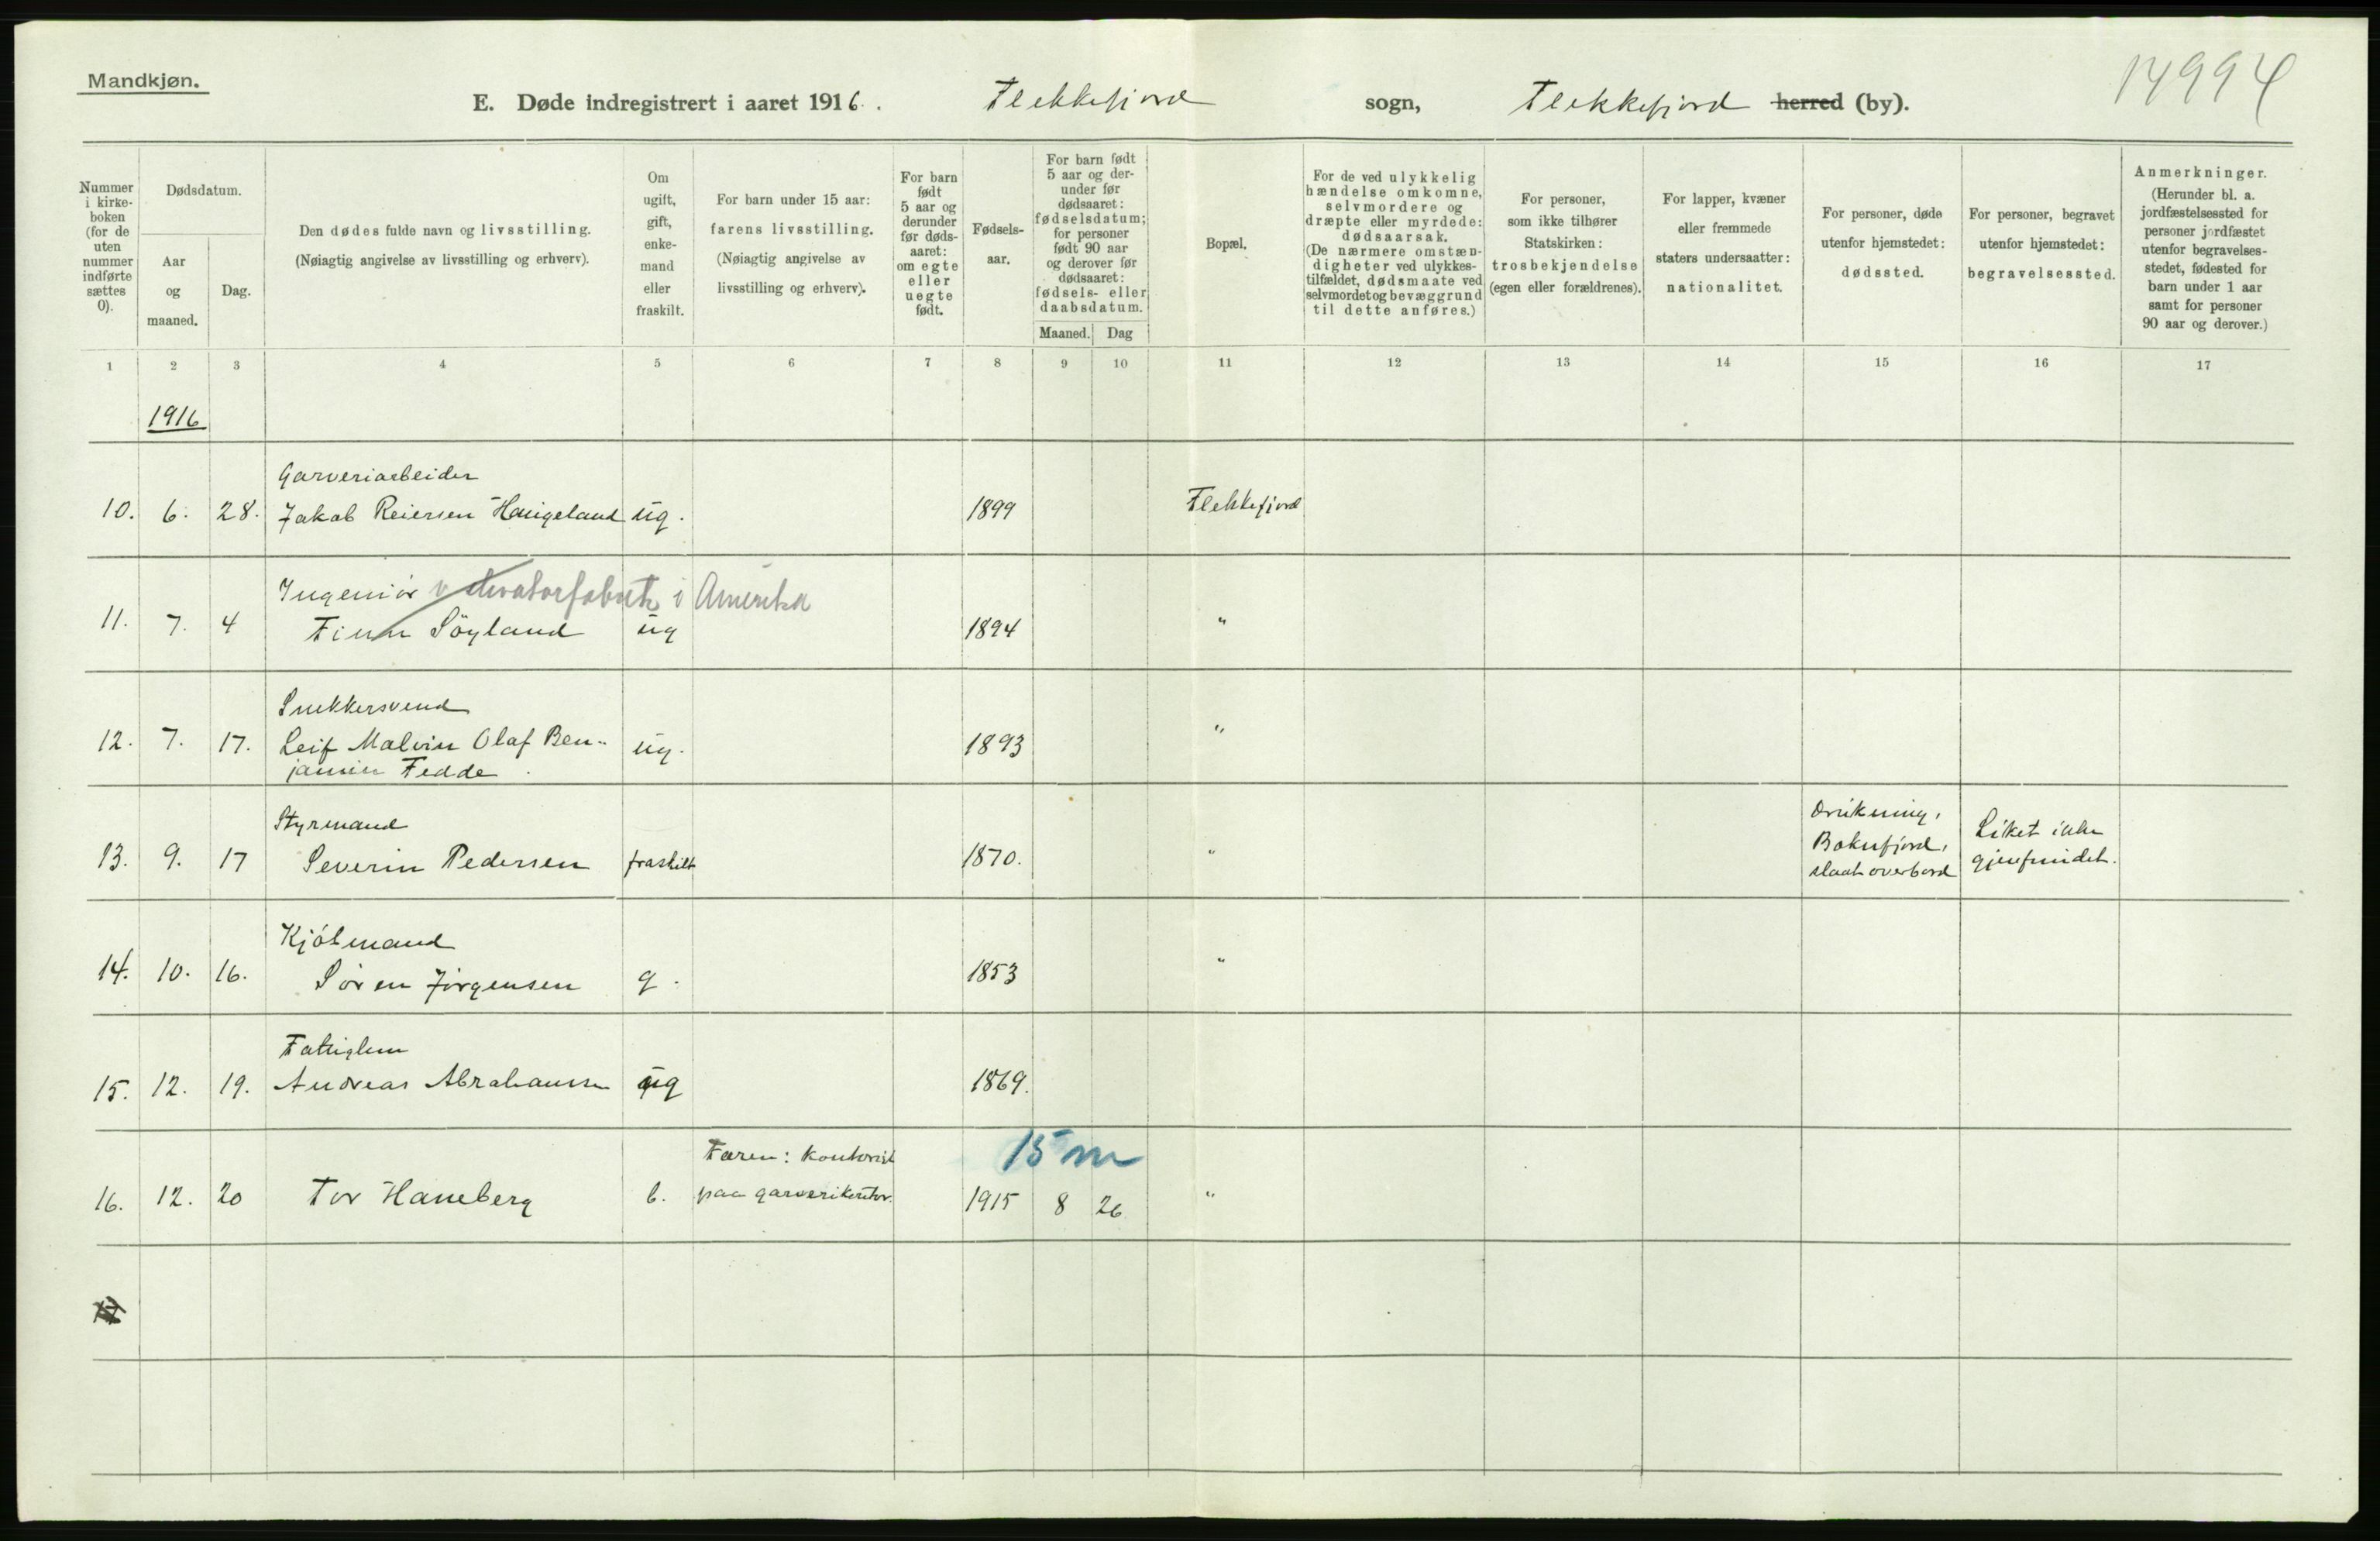 Mandkjøn.
14994
E. Døde indregistrert i aaret 1916. Flekkefjord sogn, Flekkefjord herred (by).
Nummer i kirke-boken (for de uten nummer indførte sættes 0).
Dødsdatum.
Aar og maaned.
Dag.
Den dødes fulde navn og livsstilling.
(Nøiagtig angivelse av livsstilling og erhverv).
Om ugift, gift, enke-mand eller fraskilt.
For barn under 15 aar: farens livsstilling.
(Nøiagtig angivelse av livsstilling og erhverv).
For barn født 5 aar og derunder før døds-aaret: om egte eller uegte født.
Fødsels-aar.
For barn født 5 aar og der-under før dødsaaret: fødselsdatum; for personer født 90 aar og derover før dødsaaret: fødsels- eller daabsdatum.
Maaned. Dag
Bopæl.
For de ved ulykkelig hændelse omkomne, selvmordere og dræpte eller myrdede: dødsaarsak.
(De nærmere omstæn-digheter ved ulykkes-tilfældet, dødsmaate ved selvmordet og bevæggrund til dette anføres.)
For personer, som ikke tilhører Statskirken: trosbekjendelse (egen eller forældrenes).
For lapper, kvæner eller fremmede staters undersaatter: nationalitet.
For personer, døde utenfor hjemstedet: dødssted.
For personer, begravet utenfor hjemstedet: begravelsessted.
Anmerkninger.
(Herunder bl. a. jordfæstelsessted for personer jordfæstet utenfor begravelses-stedet, fødested for barn under 1 aar samt for personer 90 aar og derover.)
1 2 3 4 5 6 7 8 9 10 11 12 13 14 15 16 17
1916
Garveriarbeider
10. 6. 28. Jakob Reiersen Haugeland ug. 1899 Flekkefjord
Ingeniör v i Amerika
11. 7. 4 Finn Söyland ug 1894 "
Snekkersvend
12. 7. 17. Leif Malvin Olaf Ben- ug. 1893 "
jamin Fedde.
Styrmand
13. 9. 17 Severin Pedersen fraskilt 1870. "
Drukning,
Boknfjord,
slaat overbord
Liket ikke
gjenfundet.
Kjólmand
14. 10. 16. Sören Jörgensen g. 1853 "
Fattiglem
15. 12. 19. Andreas Abrahamsen ug 1869.
15 m
Faren: Kontorist
16. 12. 20 Tor Haneberg b. paa garverikontor. 1915 8 26 "